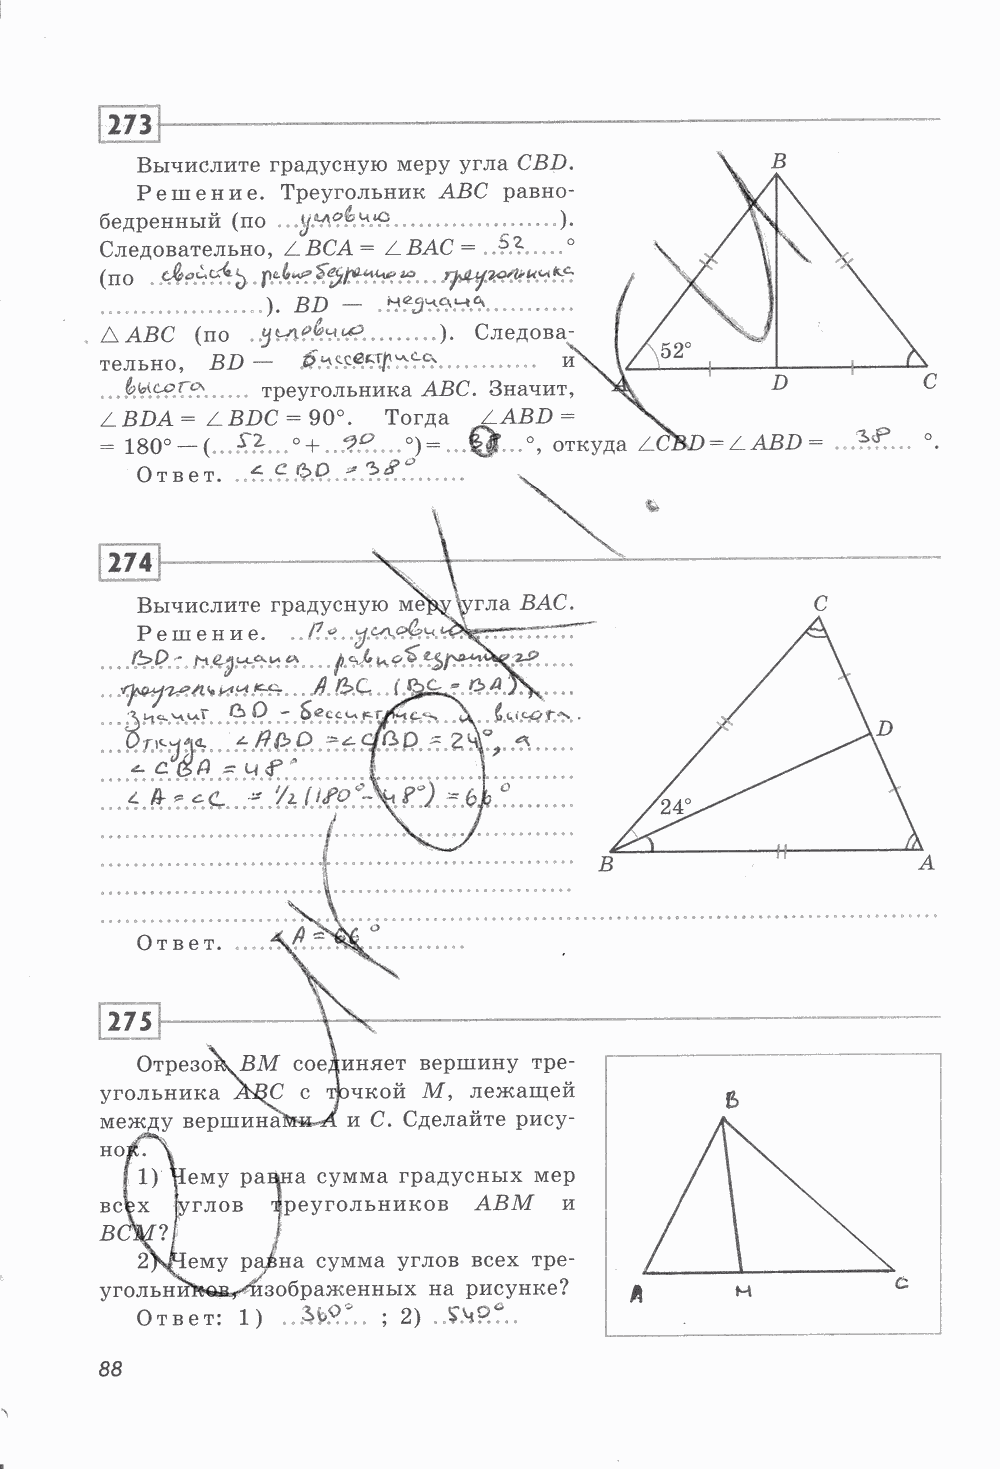 273
Вычислите градусную меру угла CBD.
Решение. Треугольник ABC равно-
бедренный (по условию).
Следовательно, ∠BCA = ∠BAC = 52°
(по свойству равнобедренного треугольника
). BD — медиана
△ABC (по условию). Следова-
тельно, BD — биссектриса и
высота треугольника ABC. Значит,
∠BDA = ∠BDC = 90°. Тогда ∠ABD =
= 180° — (52° + 90°) = 38°, откуда ∠CBD = ∠ABD = 38°.
Ответ. ∠CBD = 38°
B
52°
A
D
C
274
Вычислите градусную меру угла BAC.
Решение. По условию
BD - медиана равнобедренного
треугольника ABC (BC = BA),
значит BD - бессиктриса и высота.
Откуда ∠ABD = ∠CBD = 24°, а
∠CBA = 48°
∠A = ∠C = 1/2(180° - 48°) = 66°
Ответ. ∠A = 66°
C
D
24°
B
A
275
Отрезок BM соединяет вершину тре-
угольника ABC с точкой M, лежащей
между вершинами A и C. Сделайте рису-
нок.
1) Чему равна сумма градусных мер
всех углов треугольников ABM и
BCM?
2) Чему равна сумма углов всех тре-
угольников, изображенных на рисунке?
Ответ: 1) 360° ; 2) 540°
B
A
M
C
88